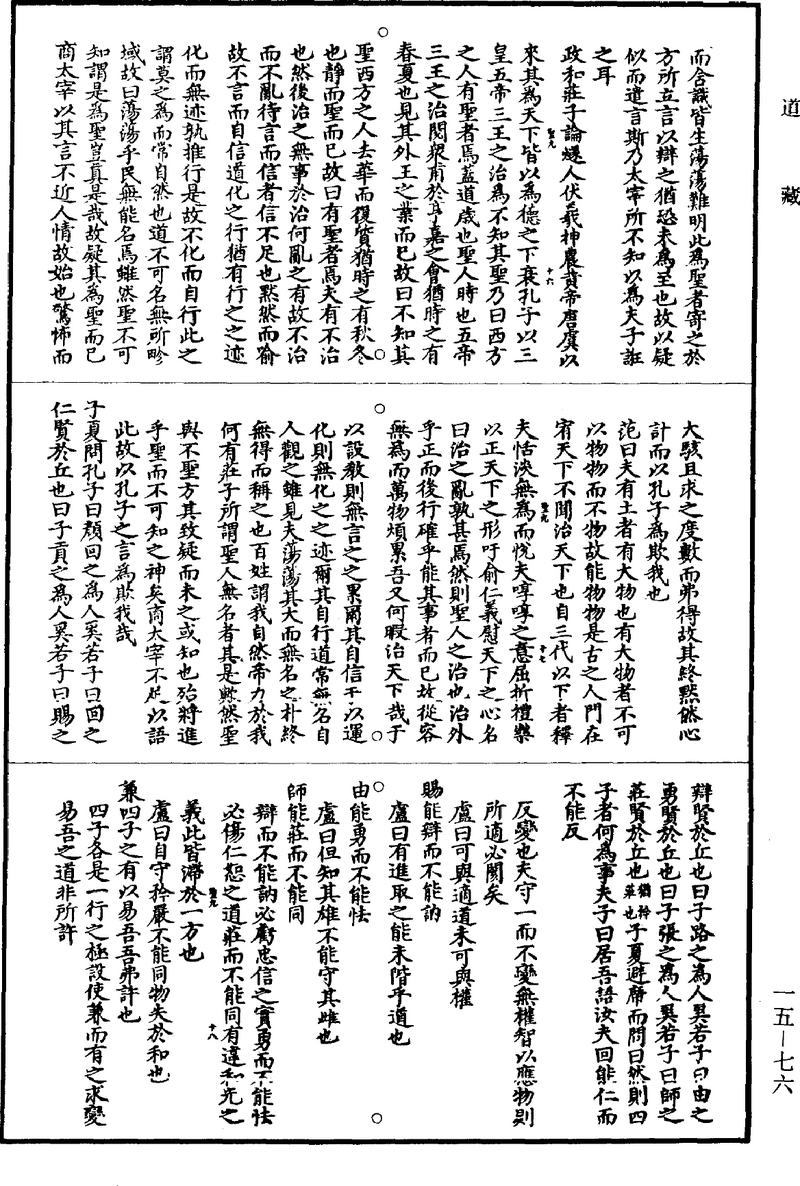 道藏
而含識皆生蕩蕩難明此為聖者寄之於
方所立言以辯之猶恐未為至也故以疑
似而遣言斯乃太宰所不知以為夫子誑
之耳
政和莊子論燧人伏羲神農黃帝唐虞以
來其為天下皆以為德之下衰孔子以三
皇五帝三王之治為不知其聖乃曰西方
之人有聖者焉蓋道歲也聖人時也五帝
三王之治閱眾甫於亨嘉之會猶時之有
春夏也見其外王之業而已故曰不知其
聖西方之人去華而復質猶時之有秋冬
也靜而聖而已故曰有聖者焉夫有不治
也然後治之無事於治何亂之有故不治
而不亂待言而信者信不足也默然而喻
故不言而自信道化之行猶有行之之迹
化而無迹孰推行是故不化而自行此之
謂莫之為而常自然也道不可名無所畛
域故曰蕩蕩乎民無能名焉雖然聖不可
知謂是為聖豈真是哉故疑其為聖而已
商太宰以其言不近人情故始也驚怖而
大駭且求之度數而弗得故其終默然心
計而以孔子為欺我也
范曰夫有土者有大物也有大物者不可
以物物而不物故能物物是古之人門在
宥天下不聞治天下也自三代以下者釋
夫恬淡無為而悅夫啍啍之意屈折禮樂
以正天下之形吁俞仁義慰天下之心名
曰治之亂孰甚焉然則聖人之治也治外
乎正而後行確乎能其事者而已故從容
無為而萬物煩累吾又何暇治天下哉于
以設教則無言之之累爾其自信于以運
化則無化之之迹爾其自行道常無名自
人觀之雖見夫蕩蕩其大而無名之朴終
無得而稱之也百姓謂我自然帝力於我
何有莊子所謂聖人無名者其是歟然聖
與不聖方其致疑而未之或知也殆將進
乎聖而不可知之神矣商太宰不足以語
此故以孔子之言為欺我哉
子夏問孔子曰顏回之為人奚若子曰回之
仁賢於丘也曰子貢之為人奚若子曰賜之
辯賢於丘也曰子路之為人奚若子曰由之
勇賢於丘也曰子張之為人奚若子曰師之
莊賢於丘也猶矜莊也子夏避席而問曰然則四
子者何為事夫子曰居吾語汝夫回能仁而
不能反
反變也夫守一而不變無權智以應物則
所適必閡矣
盧曰可與適道未可與權
賜能辯而不能訥
盧曰有進取之能未階乎道也
由能勇而不能怯
盧曰但知其雄不能守其雌也
師能莊而不能同
辯而不能訥必虧忠信之實勇而不能怯
必傷仁恕之道莊而不能同有違和光之
義此皆滯於一方也
盧曰自守矜嚴不能同物失於和也
兼四子之有以易吾吾弗許也
四子各是一行之極設使兼而有之求變
易吾之道非所許
一五—七六